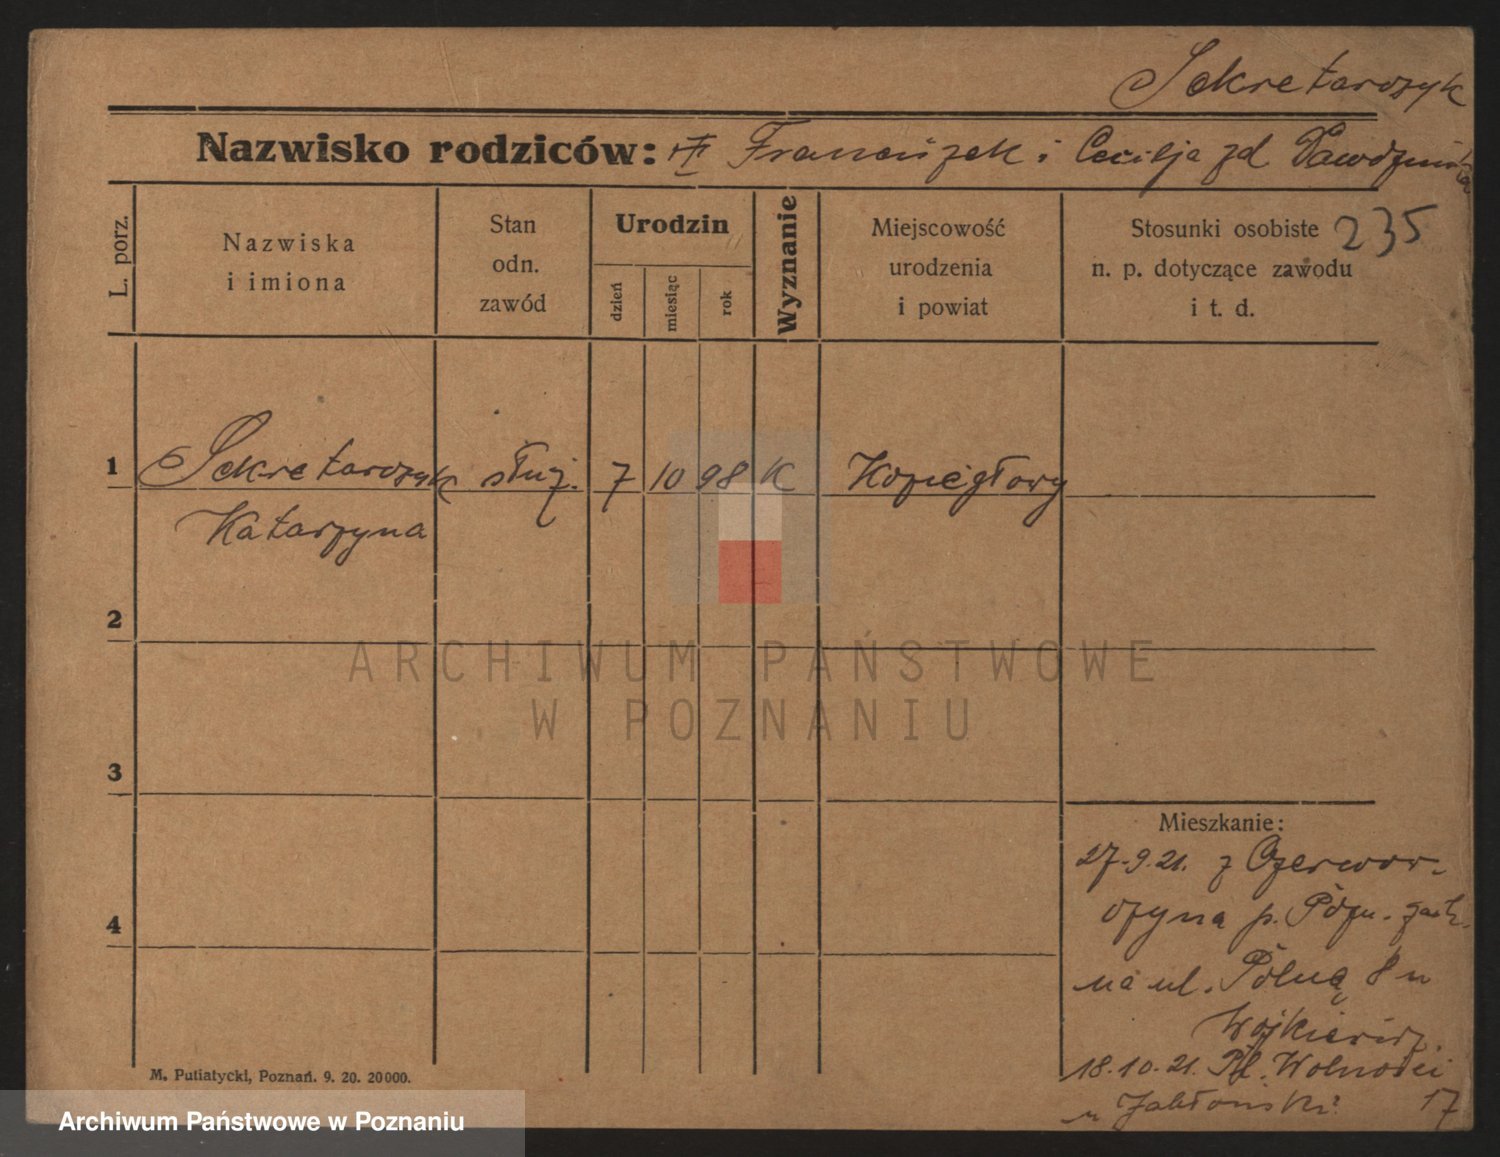 Sekretarczyk
Nazwisko rodziców: Franciszek i Cecilja zd
L. porz.
Nazwiska
i imiona
Stan
odn.
zawód
Urodzin
dzień
miesiąc
rok
Wyznanie
Miejscowość
urodzenia
i powiat
Stosunki osobiste 235
n. p. dotyczące zawodu
i t. d.
1 Sekretarczyk służ. 7 10 98 K Kopiegłowy
Katarzyna
2
ARCHIWUM PAŃSTWOWE
W POZNANIU
3
Mieszkanie:
27.9.21. z Czerwon-
4
na ul. Polną 8 u
18.10.21. Pl. Wolności
u Jabłoński 17
M. Putiatycki, Poznań. 9. 20. 20000.
Archiwum Państwowe w Poznaniu